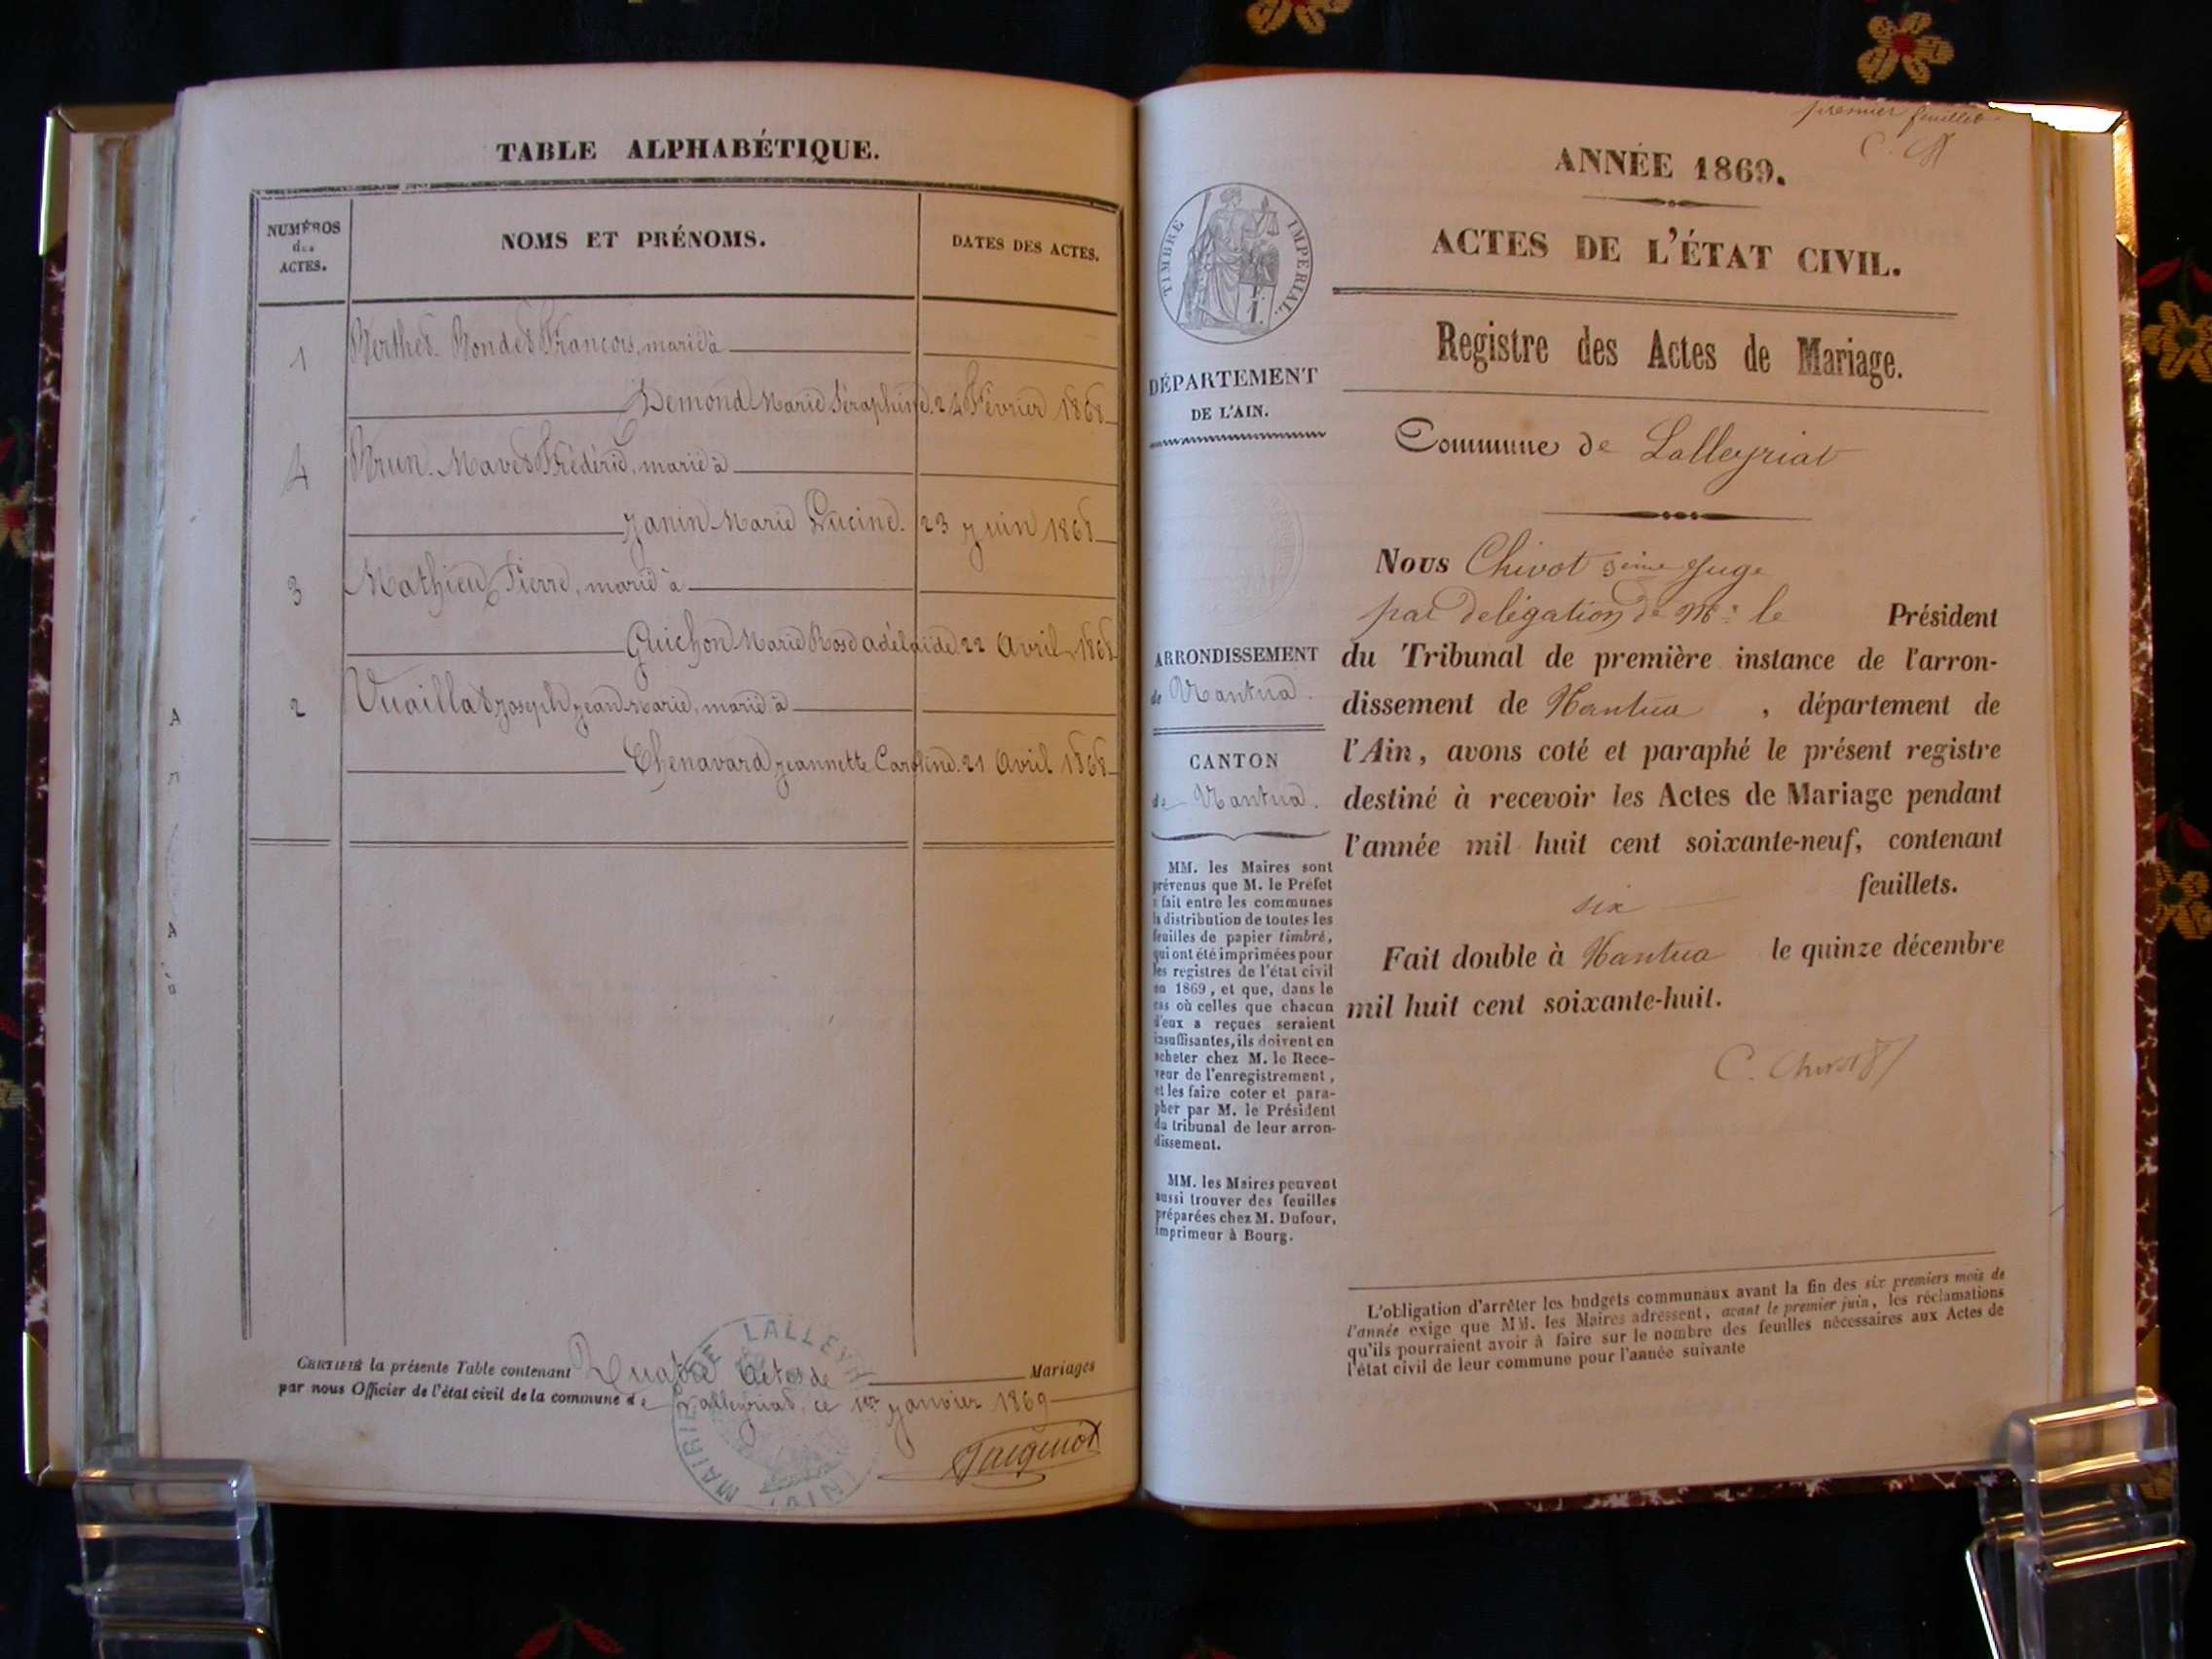 TABLE ALPHABÉTIQUE.
NUMÉROS
des
ACTES.
NOMS ET PRÉNOMS.
DATES DES ACTES.
1 Berthet-Bondet François, marié à
Demond Marie Séraphine. 24 Février 1868
4 Brun-Mavet Frédéric, marié à
Janin Marie Lucine. 23 Juin 1868
3 Mathieu Pierre, marié à
Guichon Marie Rose adélaïde. 22 Avril 1868
2 Vuaillat Joseph Jean Marie, marié à
Chenavard Jeannette Caroline. 21 Avril 1868
CERTIFIÉ la présente Table contenant Quatre Actes de Mariages
par nous Officier de l'état civil de la commune de Lalleyriat, ce 1er Janvier 1869
MAIRIE DE LALLEYRIAT
premier feuillet
ANNÉE 1869.
ACTES DE L'ÉTAT CIVIL.
TIMBRE IMPERIAL.
Registre des Actes de Mariage.
DÉPARTEMENT
DE L'AIN.
Commune de Lalleyriat
Nous Chivot 3ème Juge
par délégation de Mr le Président
ARRONDISSEMENT
de Nantua.
CANTON
de Nantua.
du Tribunal de première instance de l'arron-
dissement de Nantua, département de
l'Ain, avons coté et paraphé le présent registre
destiné à recevoir les Actes de Mariage pendant
l'année mil huit cent soixante-neuf, contenant
six feuillets.
Fait double à Nantua le quinze décembre
mil huit cent soixante-huit.
C. Chivot
MM. les Maires sont
prévenus que M. le Préfet
a fait entre les communes
la distribution de toutes les
feuilles de papier timbré,
qui ont été imprimées pour
les registres de l'état civil
en 1869, et que, dans le
cas où celles que chacun
d'eux a reçues seraient
insuffisantes, ils doivent en
acheter chez M. le Rece-
veur de l'enregistrement,
et les faire coter et para-
pher par M. le Président
du tribunal de leur arron-
dissement.
MM. les Maires peuvent
aussi trouver des feuilles
préparées chez M. Dufour,
imprimeur à Bourg.
L'obligation d'arrêter les budgets communaux avant la fin des six premiers mois de
l'année exige que MM. les Maires adressent, avant le premier juin, les réclamations
qu'ils pourraient avoir à faire sur le nombre des feuilles nécessaires aux Actes de
l'état civil de leur commune pour l'année suivante